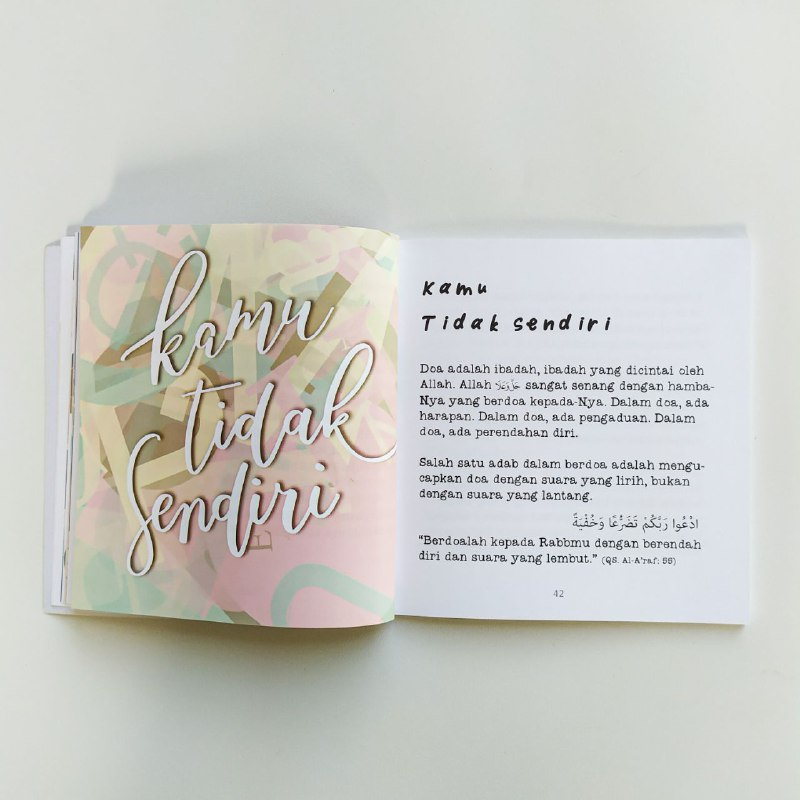 kamu
tidak
Sendiri
E
Kamu
Tidak sendiri
Doa adalah ibadah, ibadah yang dicintai oleh
Allah. Allah sangat senang dengan hamba-
Nya yang berdoa kepada-Nya. Dalam doa, ada
harapan. Dalam doa, ada pengaduan. Dalam
doa, ada perendahan diri.
Salah satu adab dalam berdoa adalah mengu-
capkan doa dengan suara yang lirih, bukan
dengan suara yang lantang.
ادْعُوا رَبَّكُمْ تَضَرُّعًا وَخُفْيَةً
“Berdoalah kepada Rabbmu dengan berendah
diri dan suara yang lembut.” (QS. Al-A'raf: 55)
42